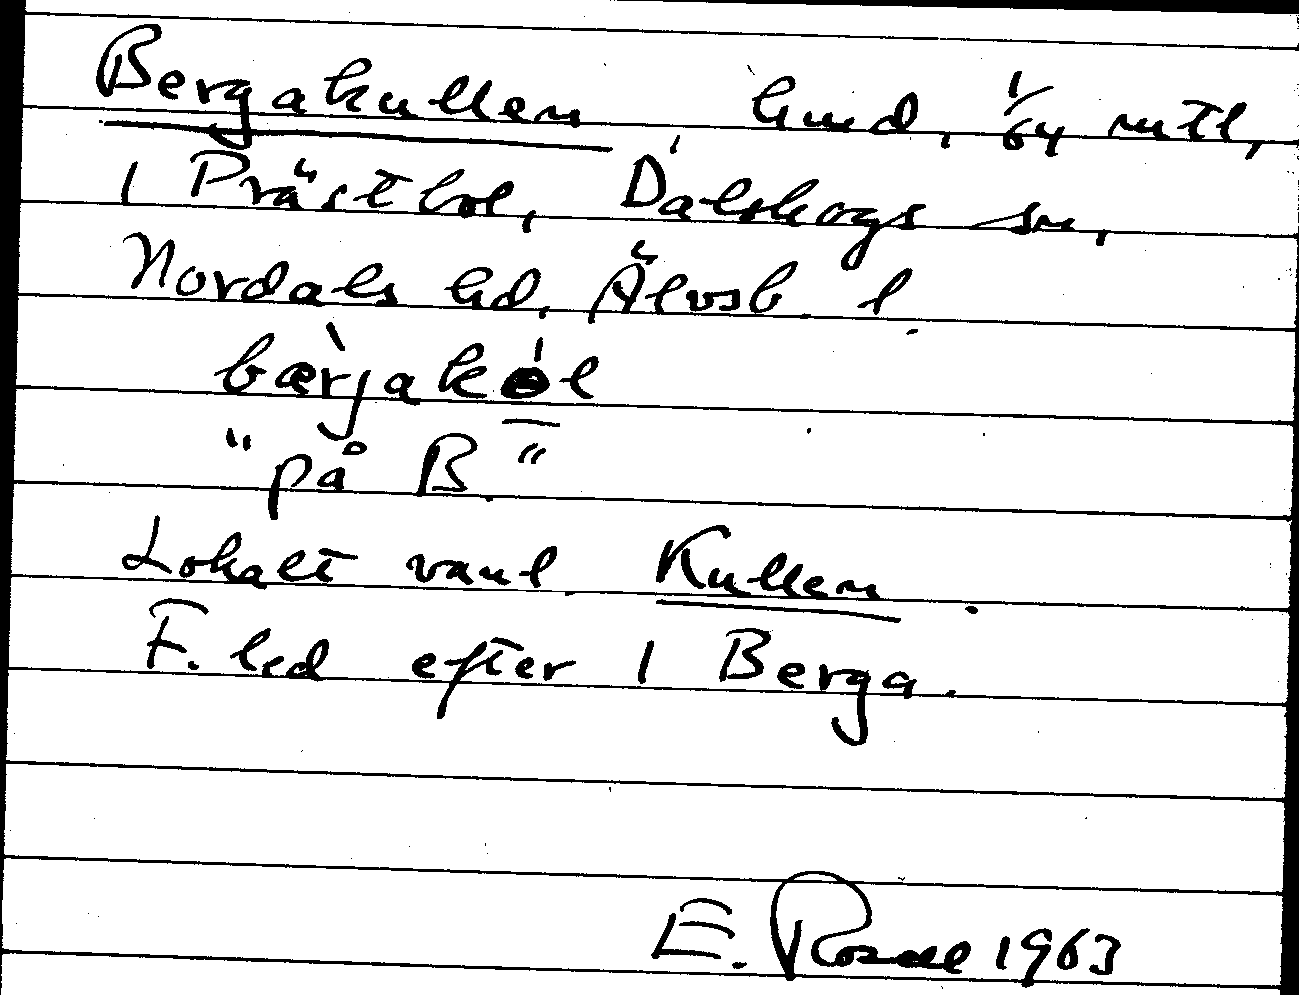 Bergakullen hmd, 1/64 mtl,
1 Prästbol, Dalskogs sn,
Nordals hd, Älvsb. l.
bæ̀rjakө́l
"på B."
Lokalt vanl. Kullen.
F. led efter 1 Berga.
E. Rosell 1963